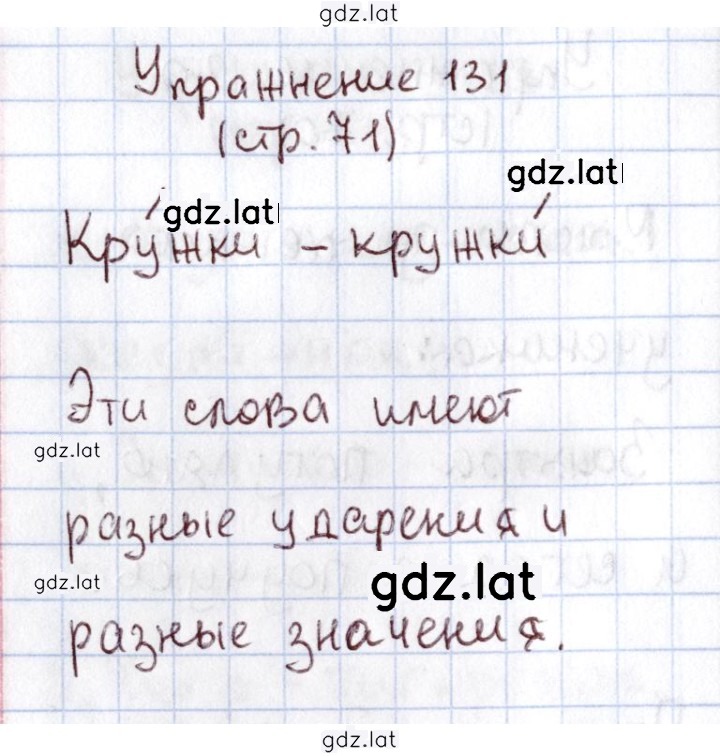 gdz.lat
Упражнение 131
(стр. 71)
gdz.lat
gdz.lat
Кру́жки – кружки́
Эти слова имеют
gdz.lat
разные ударения и
gdz.lat
gdz.lat
разные значения.
gdz.lat